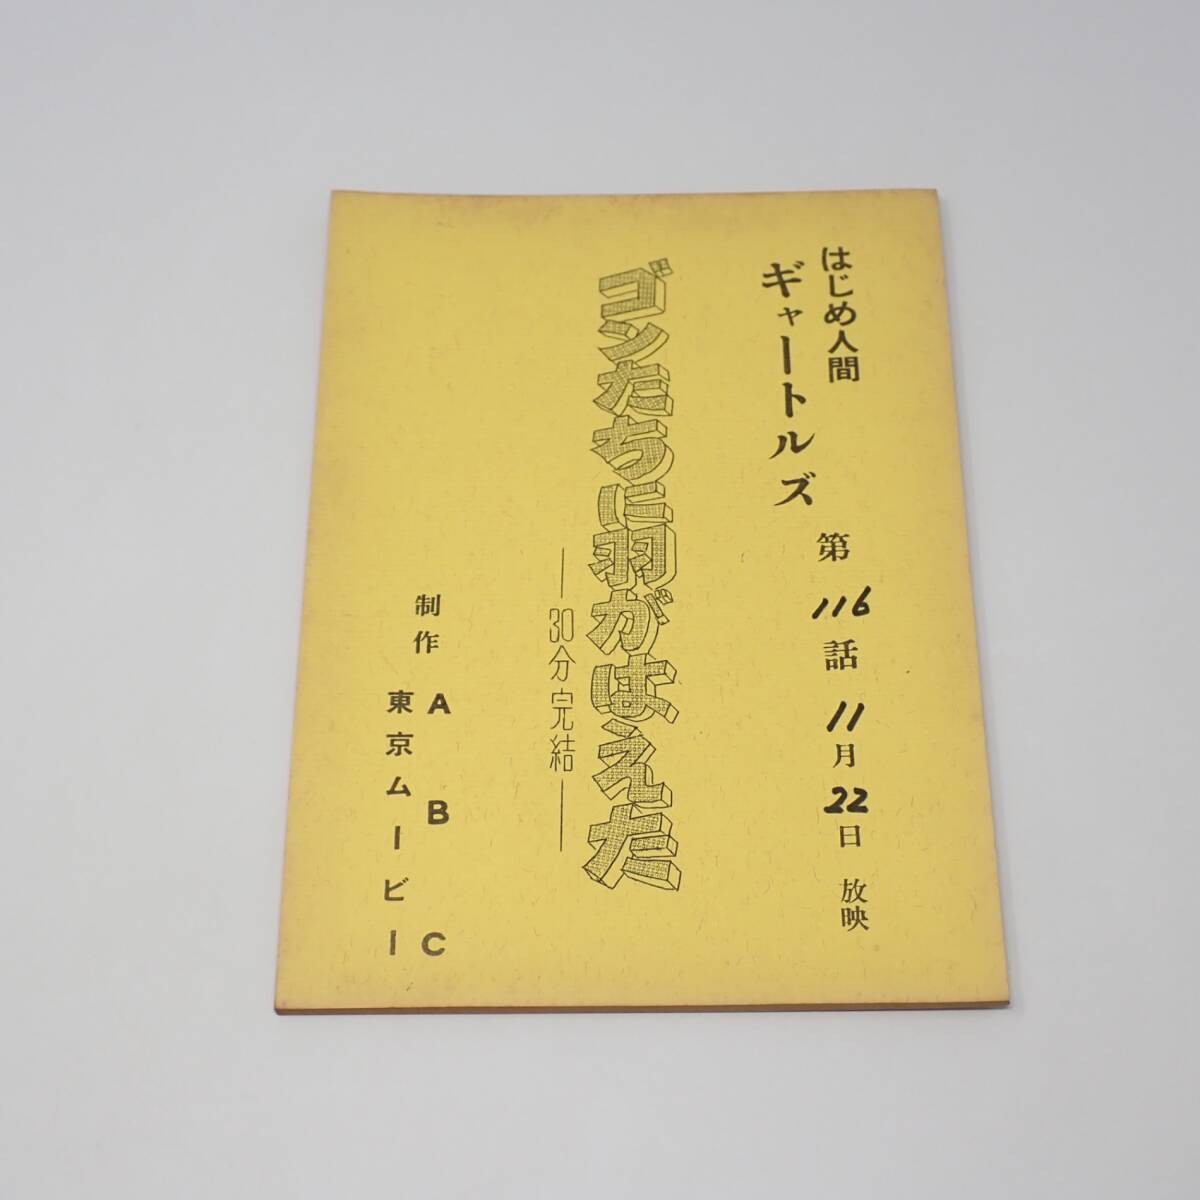 はじめ人間
ギャートルズ
第116話 11月22日 放映
ゴンたちに羽がはえた
―30分完結―
制作
ABC
東京ムービー